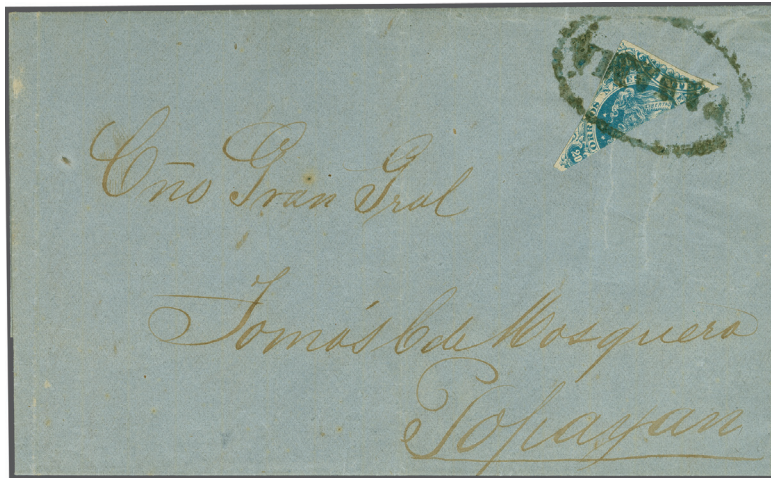 Cño Gran Gral
Tomás C de Mosquera
Popayan